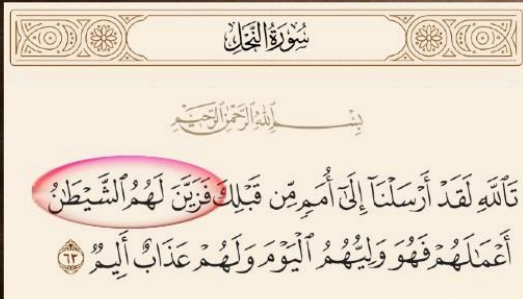 سُورَةُ النَّحْلِ
بِسْمِ اللَّهِ الرَّحْمَٰنِ الرَّحِيمِ
تَٱللَّهِ لَقَدْ أَرْسَلْنَآ إِلَىٰٓ أُمَمٍ مِّن قَبْلِكَ فَزَيَّنَ لَهُمُ ٱلشَّيْطَٰنُ
أَعْمَٰلَهُمْ فَهُوَ وَلِيُّهُمُ ٱلْيَوْمَ وَلَهُمْ عَذَابٌ أَلِيمٌ ٦٣